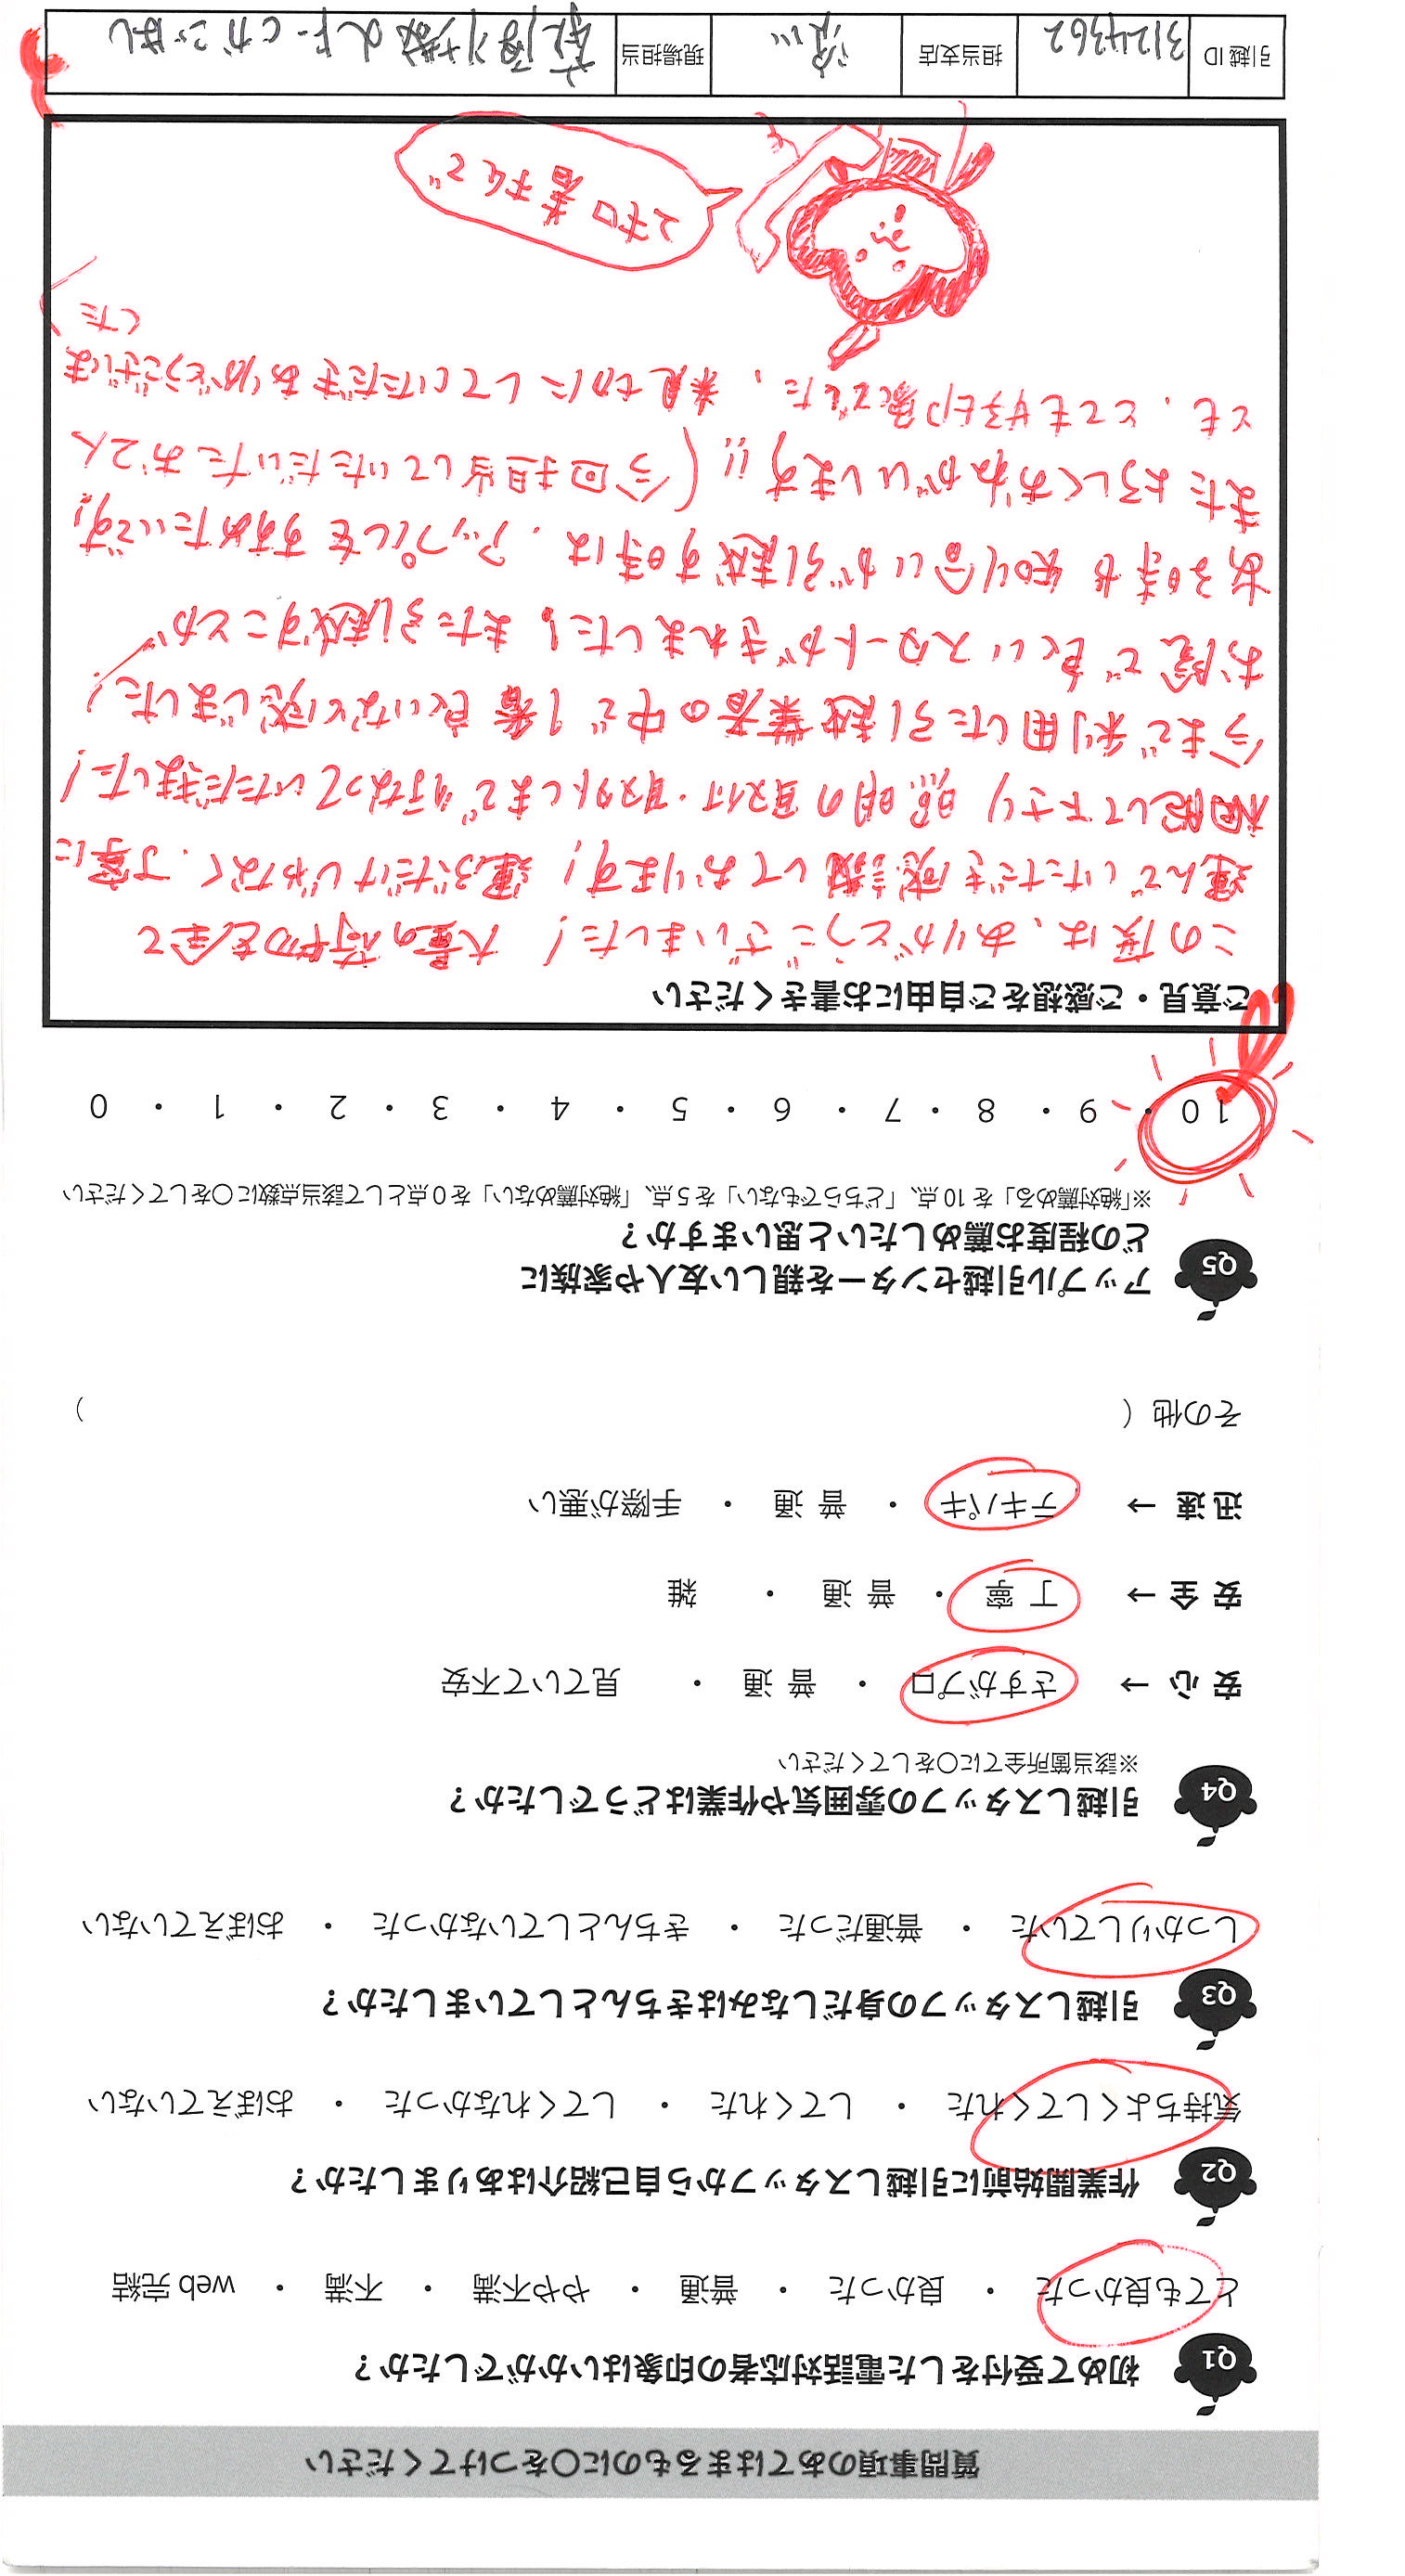 質問事項のあてはまるものに〇をつけてください
Q1 初めて受付をした電話対応者の印象はいかがでしたか？
とても良かった ・ 良かった ・ 普通 ・ やや不満 ・ 不満 ・ web 完結
Q2 作業開始前に引越しスタッフから自己紹介はありましたか？
気持ちよくしてくれた ・ してくれた ・ してくれなかった ・ おぼえていない
Q3 引越しスタッフの身だしなみはきちんとしていましたか？
しっかりしていた ・ 普通だった ・ きちんとしていなかった ・ おぼえていない
Q4 引越しスタッフの雰囲気や作業はどうでしたか？
※該当箇所全てに〇をしてください
安 心 → さすがプロ ・ 普 通 ・ 見ていて不安
安 全 → 丁 寧 ・ 普 通 ・ 雑
迅 速 → テキパキ ・ 普 通 ・ 手際が悪い
その他（ ）
Q5 アップル引越センターを親しい友人や家族に
どの程度お薦めしたいと思いますか？
※「絶対薦める」を 10 点、「どちらでもない」を 5 点、「絶対薦めない」を 0 点として該当点数に〇をしてください
10 ・ 9 ・ 8 ・ 7 ・ 6 ・ 5 ・ 4 ・ 3 ・ 2 ・ 1 ・ 0
ご意見・ご感想をご自由にお書きください
この度は、ありがとうございました！ 大量の荷物を全て
運んでいただき感謝しております！ 運ぶだけじゃなく、丁寧に
梱包して下さり 照明の取付・取外しまで行なっていただきました！
今まで利用した引越業者の中で1番良いなと感じました！
お陰で良いスタートがきれました！また引越すことが
ある時や知り合いが引越す時は、アップルをすすめたいです！
またよろしくおねがいします!!（今回担当していただいたお2人
とも、とても好印象でした、 親切にしていただきありがとうございま
した）
引越 ID 3124362 担当支店 現場担当